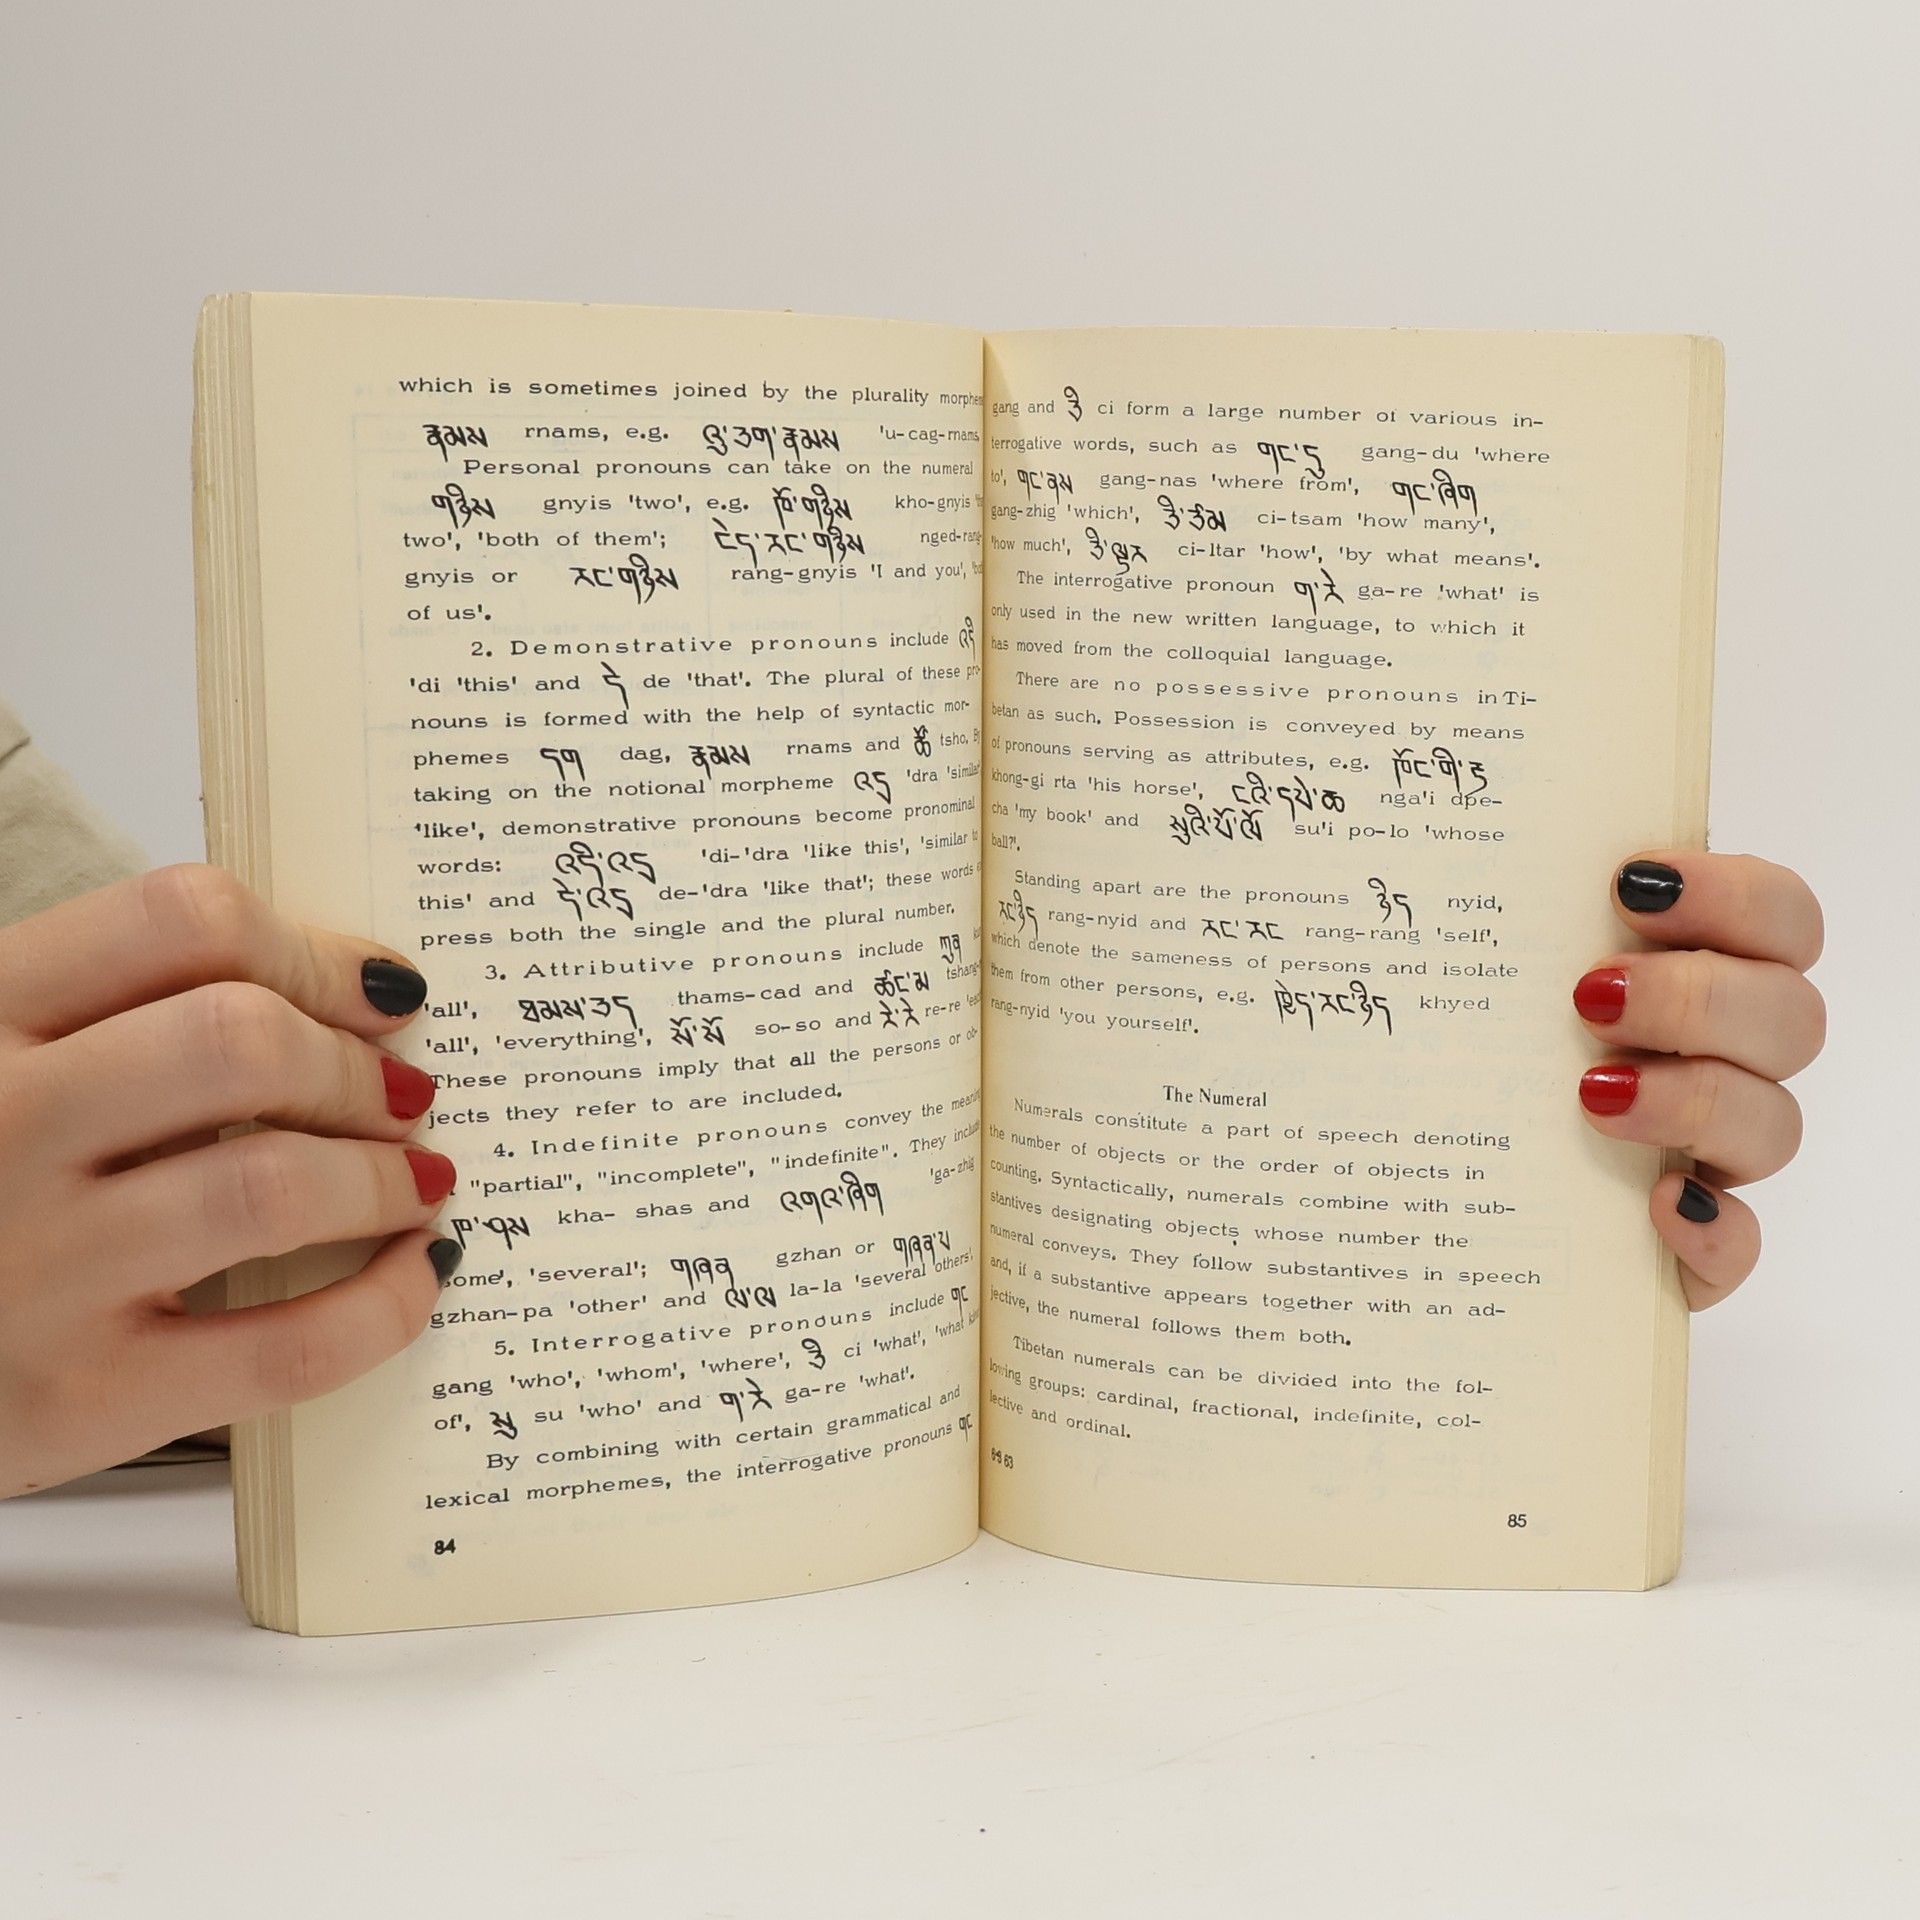 which is sometimes joined by the plurality
རྣམས rnams, e.g. འུ་ཅག་རྣམས 'u-cag-rnams
Personal pronouns can take on the numeral
གཉིས gnyis 'two', e.g. ཁོ་གཉིས kho-gnyis
two', 'both of them'; ངེད་རང་གཉིས nged-rang-
gnyis or རང་གཉིས rang-gnyis 'I and you',
of us'.
2. Demonstrative pronouns include འདི
'di 'this' and དེ de 'that'. The plural of these pro-
nouns is formed with the help of syntactic mor-
phemes དག dag, རྣམས rnams and ཚོ tsho. By
taking on the notional morpheme འདྲ 'dra 'similar
'like', demonstrative pronouns become pronominal
words: འདི་འདྲ 'di-'dra 'like this', 'similar to
this' and དེ་འདྲ de-'dra 'like that'; these words
press both the single and the plural number.
3. Attributive pronouns include ཀུན
'all', ཐམས་ཅད thams-cad and ཚང་མ tshang-
'all', 'everything', སོ་སོ so-so and རེ་རེ re-re
These pronouns imply that all the persons or ob-
jects they refer to are included.
4. Indefinite pronouns convey the meaning
"partial", "incomplete", "indefinite". They include
ཁ་ཤས kha- shas and འགའ་ཞིག 'ga-zhig
some', 'several'; གཞན gzhan or གཞན་པ
gzhan-pa 'other' and ལ་ལ la-la 'several others'.
5. Interrogative pronouns include གང
gang 'who', 'whom', 'where', ཅི ci 'what', 'what
of', སུ su 'who' and ག་རེ ga-re 'what'.
By combining with certain grammatical and
lexical morphemes, the interrogative pronouns གང
84
gang and ཅི ci form a large number of various in-
terrogative words, such as གང་དུ gang-du 'where
to', གང་ནས gang-nas 'where from', གང་ཞིག
gang-zhig 'which', ཅི་ཙམ ci-tsam 'how many',
'how much', ཅི་ལྟར ci-ltar 'how', 'by what means'.
The interrogative pronoun ག་རེ ga-re 'what' is
only used in the new written language, to which it
has moved from the colloquial language.
There are no possessive pronouns in Ti-
betan as such. Possession is conveyed by means
of pronouns serving as attributes, e.g. ཁོང་གི་རྟ
khong-gi rta 'his horse', ངའི་དཔེ་ཆ nga'i dpe-
cha 'my book' and སུའི་པོ་ལོ su'i po-lo 'whose
ball?'.
Standing apart are the pronouns ཉིད nyid,
རང་ཉིད rang-nyid and རང་རང rang-rang 'self',
which denote the sameness of persons and isolate
them from other persons, e.g. ཁྱེད་རང་ཉིད khyed
rang-nyid 'you yourself'.
The Numeral
Numerals constitute a part of speech denoting
the number of objects or the order of objects in
counting. Syntactically, numerals combine with sub-
stantives designating objects, whose number the
numeral conveys. They follow substantives in speech
and, if a substantive appears together with an ad-
jective, the numeral follows them both.
Tibetan numerals can be divided into the fol-
lowing groups: cardinal, fractional, indefinite, col-
lective and ordinal.
85